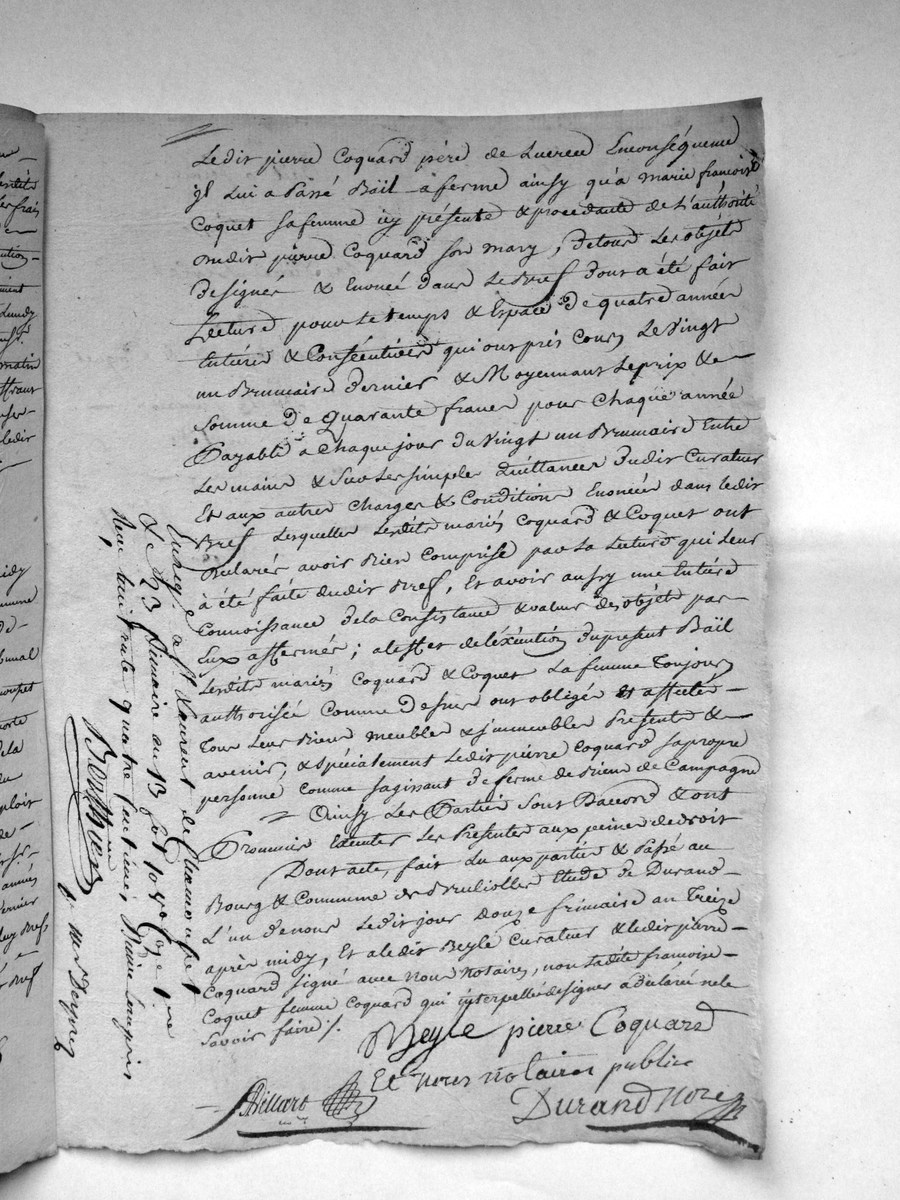 Ledit pierre Coquard père de Lucrece Enconséquence
yl Lui a Passé Bail a ferme ainsy qu'a marie francoise
Coquet sa femme icy présente & procedante de L'authorité
dudit pierre Coquard son mary, De tous Les objets
Designés & Enoncé dans Le Bref dont a été fait
Lecture pour Le temps & Espace De quatre années
Entière & Consécutives qui ont pris Cours Le Vingt
un Brumaire Dernier & Moyennant Le prix &
somme De Quarante francs pour Chaque année
Payable a Chaque jour du Vingt un Brumaire Entre
Les mains & Sur Les simples Quittances Dudit Curateur
Et aux autres Charges & Conditions Enoncées dans ledit
Bref Lesquelles Lesdits mariés Coquard & Coquet ont
Declarés avoir Bien Comprise par La Lecture qui Leur
à été faite dudit Bref, Et avoir aussy une Entière
Connoissance De la Consistance & valeur des objets par
Eux affermés; a l'effet de L'éxécution du present Bail
Lesdits mariés Coquard & Coquet La femme Toujours
authorisée Comme Dessus ont obligé & affecté
Tous Leurs Biens meubles & jmmeubles Présents &
avenir, & spécialement Ledit pierre Coquard sa propre
personne comme sagissant De ferme de Biens de Campagne
Ainsy Les Parties Sont Daccord & ont
Promis Executer Les Presentes aux peines de droit
Dont acte, fait Lu aux parties & Passé au
Bourg & Commune de Brulliolles Etude De Durand
L'un de nous Ledit jour Douze frimaire an Treize
après midy, Et a ledit Beyle Curateur & Ledit pierre
Coquard signé avec Nous Notaires, non Ladite francoise
Coquet femme Coquard qui interpellé de signer a déclaré ne le
savoir faire /.
Beyle pierre Coquard
Et Nores notaires publics
Billard
Durand Nore
Enregé a St Laurent de Chamousset
Le 23 frimaire an 13 fol 107 vo Ce 1re
Reçu quatre centimes